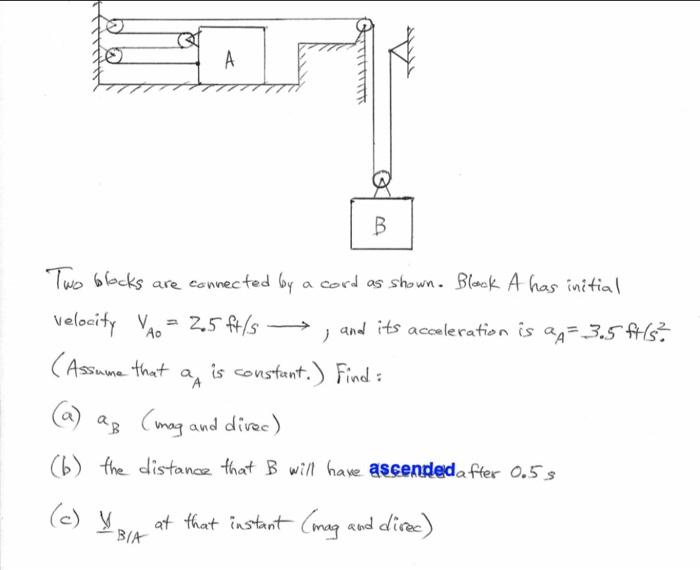 A
B
Two blocks are connected by a cord as shown. Block A has initial
velocity V_A0 = 2.5 ft/s →, and its acceleration is a_A = 3.5 ft/s².
(Assume that a_A is constant.) Find:
(a) a_B (mag and direc)
(b) the distance that B will have ascended after 0.5 s
(c) V_B/A at that instant (mag and direc)